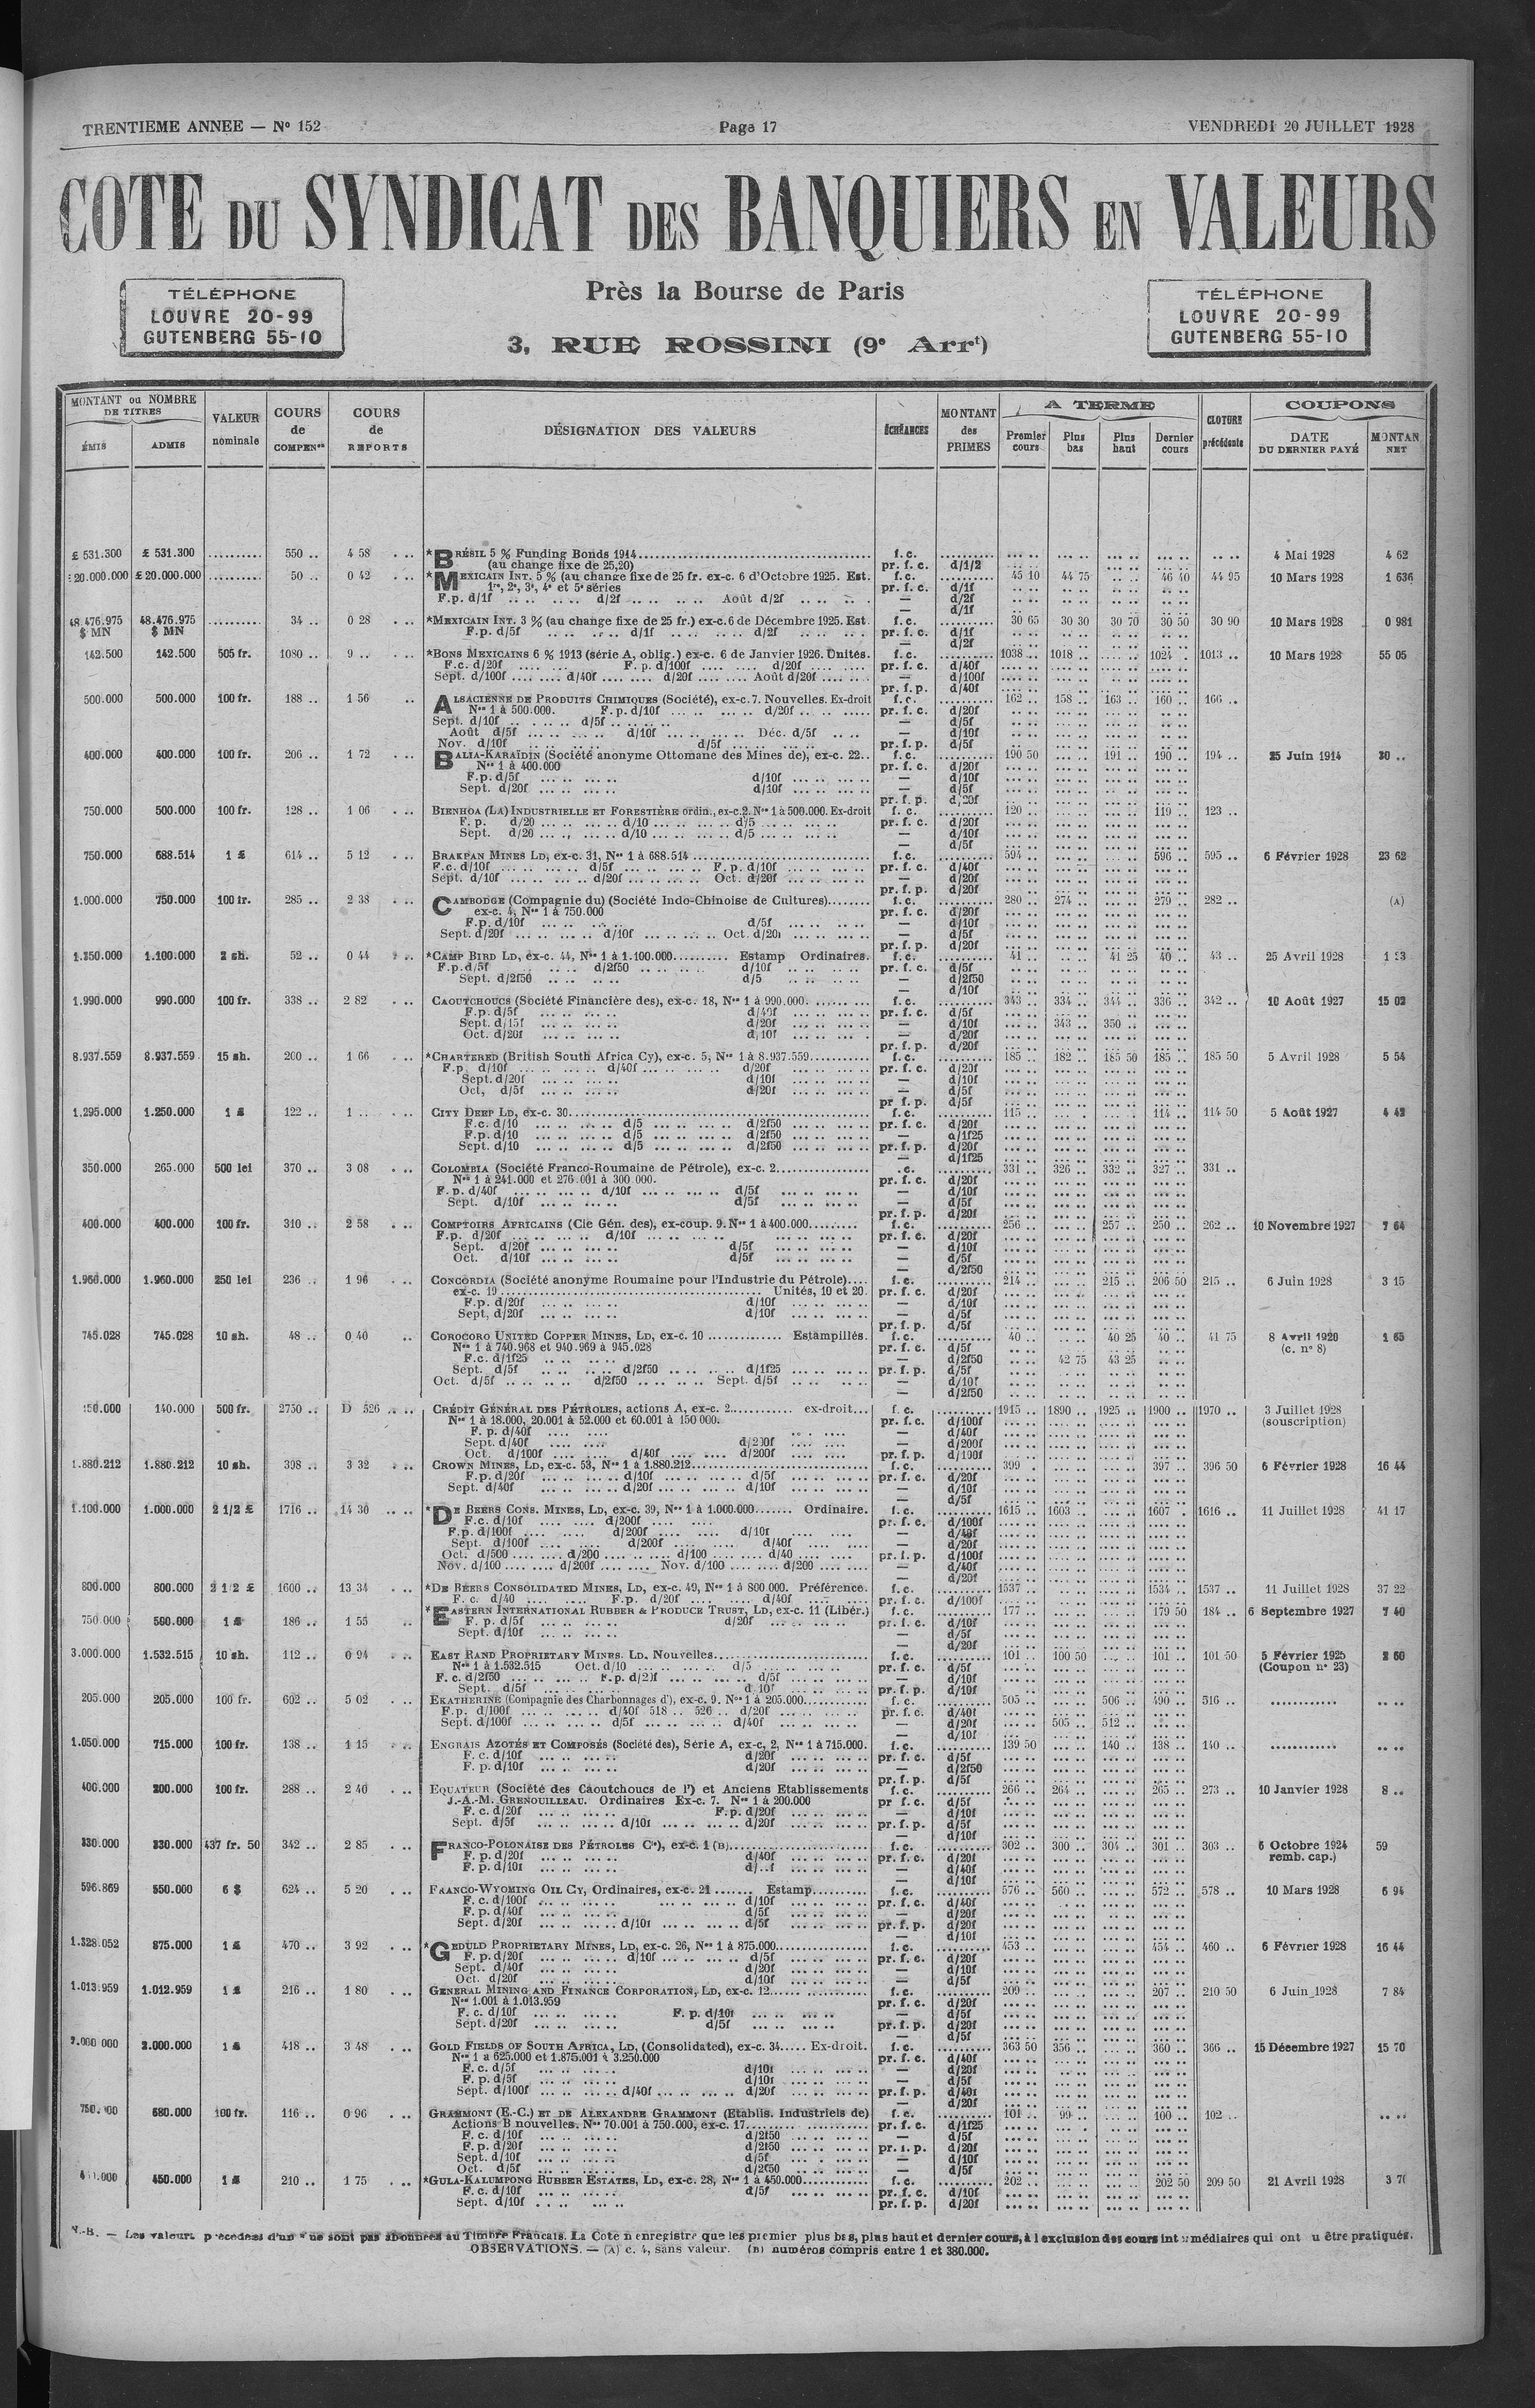 TRENTIEME ANNEE — No 152
Page 17
VENDREDI 20 JUILLET 1928
COTE DU SYNDICAT DES BANQUIERS EN VALEURS
TÉLÉPHONE
LOUVRE 20-99
GUTENBERG 55-10
Près la Bourse de Paris
3, RUE ROSSINI (9e Arrt)
TÉLÉPHONE
LOUVRE 20-99
GUTENBERG 55-10
MONTANT ou NOMBRE DE TITRES
ÉMIS ADMIS
VALEUR nominale
COURS de COMPENon
COURS de REPORTS
DÉSIGNATION DES VALEURS
ÉCHÉANCES
MONTANT des PRIMES
A TERME
Premier cours Plus bas Plus haut Dernier cours
CLOTURE précédente
COUPONS
DATE DU DERNIER PAYÉ MONTAN NET
£ 531.300 £ 531.300 .......... 550 .. 4 58 *BRÉSIL 5 % Funding Bonds 1914 f.c. 4 Mai 1928 4 62
(au change fixe de 25,20) pr. f. c. d/1/2
20.000.000 £ 20.000.000 .......... 50 .. 0 42 *MEXICAIN INT. 5 % (au change fixe de 25 fr. ex-c. 6 d'Octobre 1925. Est. f.c. 45 10 44 75 46 40 44 95 10 Mars 1928 1 636
1re, 2e, 3e, 4e et 5e séries pr. f. c. d/1f
F.p. d/1f d/2f Août d/2f — d/2f
— d/1f
48.476.975 48.476.975 .......... 34 .. 0 28 *MEXICAIN INT. 3 % (au change fixe de 25 fr.) ex-c. 6 de Décembre 1925. Est. f.c. 30 65 30 30 30 70 30 50 30 90 10 Mars 1928 0 981
$ MN $ MN F.p. d/5f d/1f d/2f pr. f. c. d/1f
— d/2f
142.500 142.500 505 fr. 1080 .. 9 .. *BONS MEXICAINS 6 % 1913 (série A, oblig.) ex-c. 6 de Janvier 1926. Unités. f.c. 1038 .. 1018 .. 1024 . 1013 .. 10 Mars 1928 55 05
F.c. d/20f F.p. d/100f d/20f pr. f. c. d/40f
Sept. d/100f d/40f d/20f Août d/20f — d/100f
pr. f. p. d/40f
500.000 500.000 100 fr. 188 .. 1 56 ALSACIENNE DE PRODUITS CHIMIQUES (Société), ex-c. 7. Nouvelles. Ex-droit f.c. 162 .. 158 .. 163 .. 160 .. 166 ..
Nos 1 à 500.000. F.p. d/10f d/20f pr. f. c. d/20f
Sept. d/10f d/5f — d/5f
Août d/5f d/10f Déc. d/5f — d/10f
Nov. d/10f d/5f pr. f. p. d/5f
400.000 400.000 100 fr. 206 .. 1 72 BALIA-KARAÏDIN (Société anonyme Ottomane des Mines de), ex-c. 22.. f.c. 190 50 191 .. 190 .. 194 .. 25 Juin 1914 20 ..
Nos 1 à 400.000 pr. f. c. d/20f
F.p. d/5f d/10f — d/10f
Sept. d/20f d/10f — d/5f
pr. f. p. d/20f
750.000 500.000 100 fr. 128 .. 1 06 BIENHOA (LA) INDUSTRIELLE ET FORESTIÈRE ordin., ex-c. 2. Nos 1 à 500.000. Ex-droit f.c. 120 .. 119 .. 123 ..
F. p. d/20 d/10 d/5 pr. f. c. d/20f
Sept. d/20 d/10 d/5 — d/10f
— d/5f
750.000 688.514 1 £ 614 .. 5 12 BRAKPAN MINES LD, ex-c. 31, Nos 1 à 688.514 f.c. 594 .. 596 .. 595 .. 6 Février 1928 23 62
F.c. d/10f d/5f F. p. d/10f pr. f. c. d/40f
Sept. d/10f d/20f Oct. d/20f — d/20f
pr. f. p. d/20f
1.000.000 750.000 100 fr. 285 .. 2 38 CAMBODGE (Compagnie du) (Société Indo-Chinoise de Cultures) f.c. 280 .. 274 .. 279 .. 282 .. (A)
ex-c. 4, Nos 1 à 750.000 pr. f. c. d/20f
F.p. d/10f d/5f — d/10f
Sept. d/20f d/10f Oct. d/20f — d/5f
pr. f. p. d/20f
1.350.000 1.100.000 2 sh. 52 .. 0 44 *CAMP BIRD LD, ex-c. 44, Nos 1 à 1.100.000 Estamp Ordinaires. f.c. 41 .. 41 25 40 .. 43 .. 25 Avril 1928
F.p. d/5f d/2f50 d/10f pr. f. c. d/5f
Sept. d/2f50 d/5 — d/2f50
— d/10f
1.990.000 990.000 100 fr. 338 .. 2 82 CAOUTCHOUCS (Société Financière des), ex-c. 18, Nos 1 à 990.000. f.c. 343 .. 334 .. 344 .. 336 .. 342 .. 10 Août 1927 15 02
F.p. d/5f d/40f pr. f. c. d/5f
Sept. d/15f d/20f — d/10f 343 .. 350 ..
Oct. d/20f d/10f — d/20f
pr. f. p. d/20f
8.937.559 8.937.559 15 sh. 200 .. 1 66 *CHARTERED (British South Africa Cy), ex-c. 5, Nos 1 à 8.937.559 f.c. 185 .. 182 .. 185 50 185 .. 185 50 5 Avril 1928 5 54
F.p. d/10f d/40f d/20f pr. f. c. d/20f
Sept. d/20f d/10f — d/10f
Oct, d/5f d/20f — d/5f
pr f. p. d/5f
1.295.000 1.250.000 1 £ 122 .. 1 .. CITY DEEP LD, ex-c. 30 f.c. 115 .. 114 .. 114 50 5 Août 1927 4 42
F.c. d/10 d/5 d/2f50 pr. f. c. d/20f
F.p. d/10 d/5 d/2f50 — d/1f25
Sept. d/10 d/5 d/2f50 pr. f. p. d/20f
— d/1f25
350.000 265.000 500 lei 370 .. 3 08 COLOMBIA (Société Franco-Roumaine de Pétrole), ex-c. 2 .c. 331 .. 326 .. 332 .. 327 .. 331 ..
Nos 1 à 241.000 et 276.001 à 300 000. pr. f. c. d/20f
F. p. d/40f d/10f d/5f — d/10f
Sept. d/10f d/5f — d/5f
pr. f. p. d/20f
400.000 400.000 100 fr. 310 .. 2 58 COMPTOIRS AFRICAINS (Cie Gén. des), ex-coup. 9. Nos 1 à 400.000 f.c. 256 .. 257 .. 250 .. 262 .. 10 Novembre 1927 7 64
F.p. d/20f d/10f pr. f. c. d/20f
Sept. d/20f d/5f — d/10f
Oct. d/10f d/5f — d/5f
— d/2f50
1.960.000 1.960.000 250 lei 236 .. 1 96 CONCORDIA (Société anonyme Roumaine pour l'Industrie du Pétrole) f.c. 214 .. 215 .. 206 50 215 .. 6 Juin 1928 3 15
ex-c. 19 Unités, 10 et 20. pr. f. c. d/20f
F.p. d/20f d/10f — d/10f
Sept. d/20f d/10f — d/5f
pr. f. p. d/5f
745.028 745.028 10 sh. 48 .. 0 40 COROCORO UNITED COPPER MINES, LD, ex-c. 10 Estampillés. f.c. 40 .. 40 25 40 .. 41 75 8 Avril 1920 1 65
Nos 1 à 740.968 et 940.969 à 945.028 pr. f. c. d/5f (c. no 8)
F.c. d/1f25 — d/2f50 42 75 43 25
Sept. d/5f d/2f50 d/1f25 pr. f. p. d/5f
Oct. d/5f d/2f50 Sept. d/5f — d/10f
— d/2f50
150.000 140.000 500 fr. 2750 .. D 526 CRÉDIT GÉNÉRAL DES PÉTROLES, actions A, ex-c. 2 ex-droit f.c. 1915 .. 1890 .. 1925 .. 1900 .. 1970 .. 3 Juillet 1928
Nos 1 à 18.000, 20.001 à 52.000 et 60.001 à 150 000. pr. f. c. d/100f (souscription)
F. p. d/40f — d/40f
Sept. d/40f d/200f — d/200f
Oct. d/100f d/40f d/200f pr. f. p. d/100f
1.880.212 1.880.212 10 sh. 398 .. 3 32 CROWN MINES, LD, ex-c. 53, Nos 1 à 1.880.212 f.c. 399 .. 397 .. 396 50 6 Février 1928 16 44
F.p. d/20f d/10f d/5f pr. f. c. d/20f
Sept. d/40f d/20f d/10f — d/10f
— d/5f
1.100.000 1.000.000 2 1/2 £ 1716 .. 14 30 *DE BEERS CONS. MINES, LD, ex-c. 39, Nos 1 à 1.000.000 Ordinaire. f.c. 1615 .. 1603 .. 1607 . 1616 .. 11 Juillet 1928 41 17
F.c. d/10f d/200f pr. f. c. d/100f
F.p. d/100f d/200f d/10f — d/40f
Sept. d/100f d/200f d/40f — d/20f
Oct. d/500 d/200 d/100 d/40 pr. f. p. d/100f
Nov. d/100 d/200f Nov. d/100 d/200 — d/40f
— d/20f
800.000 800.000 2 1/2 £ 1600 .. 13 34 *DE BEERS CONSOLIDATED MINES, LD, ex-c. 49, Nos 1 à 800 000. Préférence. f.c. 1537 1534 .. 1537 .. 11 Juillet 1928 37 22
F. c. d/40 F.p. d/20f d/40f pr. f. c. d/100f
750 000 500.000 1 £ 186 .. 1 55 *EASTERN INTERNATIONAL RUBBER & PRODUCE TRUST, LD, ex-c. 11 (Libér.) f.c. 177 .. 179 50 184 .. 6 Septembre 1927 7 40
F. p. d/5f d/20f pr. f. c. d/10f
Sept. d/10f — d/5f
— d/20f
3.000.000 1.532.515 10 sh. 112 .. 0 94 EAST RAND PROPRIETARY MINES. LD. Nouvelles f.c. 101 .. 100 50 101 .. 101 50 5 Février 1925 2 60
Nos 1 à 1.532.515 Oct. d/10 d/5 pr. f. c. d/5f (Coupon no 23)
F. c. d/2f50 F.p. d/2f d/5f — d/10f
Sept. d/5f d 10f pr. f. p. d/10f
205.000 205.000 100 fr. 602 .. 5 02 EKATHERINE (Compagnie des Charbonnages d'), ex-c. 9. Nos 1 à 205.000 f.c. 505 .. 506 .. 490 .. 516 .. ............
F.p. d/100f d/40f 518 .. 526 .. d/20f pr. f. c. d/40f
Sept. d/100f d/5f d/40f — d/20f 505 .. 512 ..
— d/10f
1.050.000 715.000 100 fr. 138 .. 1 15 ENGRAIS AZOTÉS ET COMPOSÉS (Société des), Série A, ex-c, 2, Nos 1 à 715.000. f.c. 139 50 140 .. 138 .. 140 .. ............
F. c. d/10f d/20f pr. f. c. d/5f
F. p. d/10f d/20f — d/2f50
pr. f. p. d/5f
400.000 200.000 100 fr. 288 .. 2 40 EQUATEUR (Société des Caoutchoucs de l') et Anciens Etablissements f.c. 266 .. 264 .. 265 .. 273 .. 10 Janvier 1928 8 ..
J.-A.-M. GRENOUILLEAU. Ordinaires Ex-c. 7. Nos 1 à 200.000 pr f. c. d/5f
F. c. d/20f F.p. d/20f — d/10f
Sept. d/5f d/10f d/20f pr. f. p. d/5f
— d/10f
330.000 330.000 437 fr. 50 342 .. 2 85 FRANCO-POLONAISE DES PÉTROLES Cie), ex-c. 1 (B) f.c. 302 .. 300 .. 304 .. 301 .. 303 .. 6 Octobre 1924 59
F. p. d/20f d/40f pr. f. c. d/20f remb. cap.)
F. p. d/10f — d/40f
— d/10f
596.869 550.000 6 $ 624 .. 5 20 FRANCO-WYOMING OIL CY, Ordinaires, ex-c. 21 Estamp f.c. 576 .. 560 .. 572 .. 578 .. 10 Mars 1928 6 94
F. c. d/100f d/10f pr. f. c. d/40f
F. p. d/40f d/5f — d/20f
Sept. d/20f d/10f d/5f pr. f. p. d/20f
— d/10f
1.328.052 875.000 1 £ 470 .. 3 92 *GEDULD PROPRIETARY MINES, LD, ex-c. 26, Nos 1 à 875.000 f.c. 453 .. 454 .. 460 .. 6 Février 1928 16 44
F. p. d/20f d/10f d/5f pr. f. c. d/20f
Sept. d/40f d/20f — d/10f
Oct. d/20f d/10f — d/5f
1.013.959 1.012.959 1 £ 216 .. 1 80 GENERAL MINING AND FINANCE CORPORATION, LD, ex-c. 12 f.c. 209 .. 207 .. 210 50 6 Juin 1928 7 84
Nos 1.001 à 1.013.959 pr. f. c. d/20f
F. c. d/10f F. p. d/10f — d/5f
Sept. d/20f d/5f pr. f. p. d/20f
— d/5f
2.000 000 2.000.000 1 £ 418 .. 3 48 GOLD FIELDS OF SOUTH AFRICA, LD, (Consolidated), ex-c. 34 Ex-droit. f.c. 363 50 356 .. 360 .. 366 .. 15 Décembre 1927 15 70
Nos 1 à 625.000 et 1.875.001 à 3.250.000 pr. f. c. d/40f
F. c. d/5f d/10f — d/20f
F. p. d/5f d/10f — d/5f
Sept. d/100f d/40f d/20f pr. f. p. d/40f
— d/20f
680.000 100 fr. 116 .. 0 96 GRAMMONT (E.-C.) ET DE ALEXANDRE GRAMMONT (Etablis. Industriels de) f.c. 101 .. 99 .. 100 .. 102 ..
Actions B nouvelles. Nos 70.001 à 750.000, ex-c. 17 pr. f. c. d/1f25
F. c. d/10f d/2f50 — d/5f
F. p. d/20f d/2f50 pr. f. p. d/20f
Sept. d/10f d/5f — d/10f
Oct. d/5f d/2f50 — d/5f
450.000 1 £ 210 .. 1 75 *GULA-KALUMPONG RUBBER ESTATES, LD, ex-c. 28, Nos 1 à 450.000 f.c. 202 .. 202 50 209 50 21 Avril 1928
F. c. d/10f d/5f pr. f. c. d/10f
Sept. d/10f pr. f. p. d/20f
N.-B. — Les valeurs précédées d'un * ne sont pas abonnées au Timbre Français. La Cote n enregistre que les premier plus bas, plus haut et dernier cours, à l exclusion des cours intermédiaires qui ont u être pratiqués.
OBSERVATIONS. — (A) c. 4, sans valeur. (B) numéros compris entre 1 et 380.000.